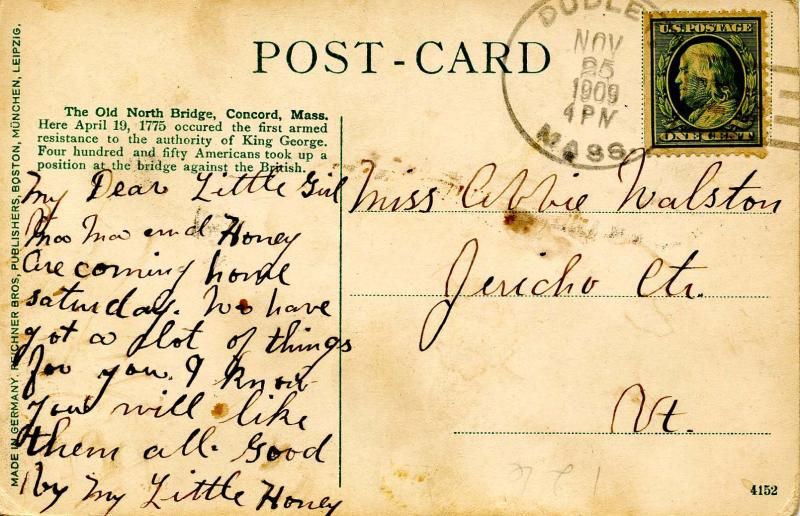 POST-CARD
The Old North Bridge, Concord, Mass.
Here April 19, 1775 occured the first armed
resistance to the authority of King George.
Four hundred and fifty Americans took up a
position at the bridge against the British.
My Dear Little Girl
Moo Moo and Honey
Are coming home
saturday. We have
got a lot of things
for you. I know
you will like
them all. Good
by My Little Honey
Miss Abbie Walston
Jericho Ctr.
Vt.
NOV
25
1909
4 PM
MASS
U.S. POSTAGE
ONE CENT
MADE IN GERMANY. REICHNER BROS, PUBLISHERS, BOSTON, MÜNCHEN, LEIPZIG.
4152